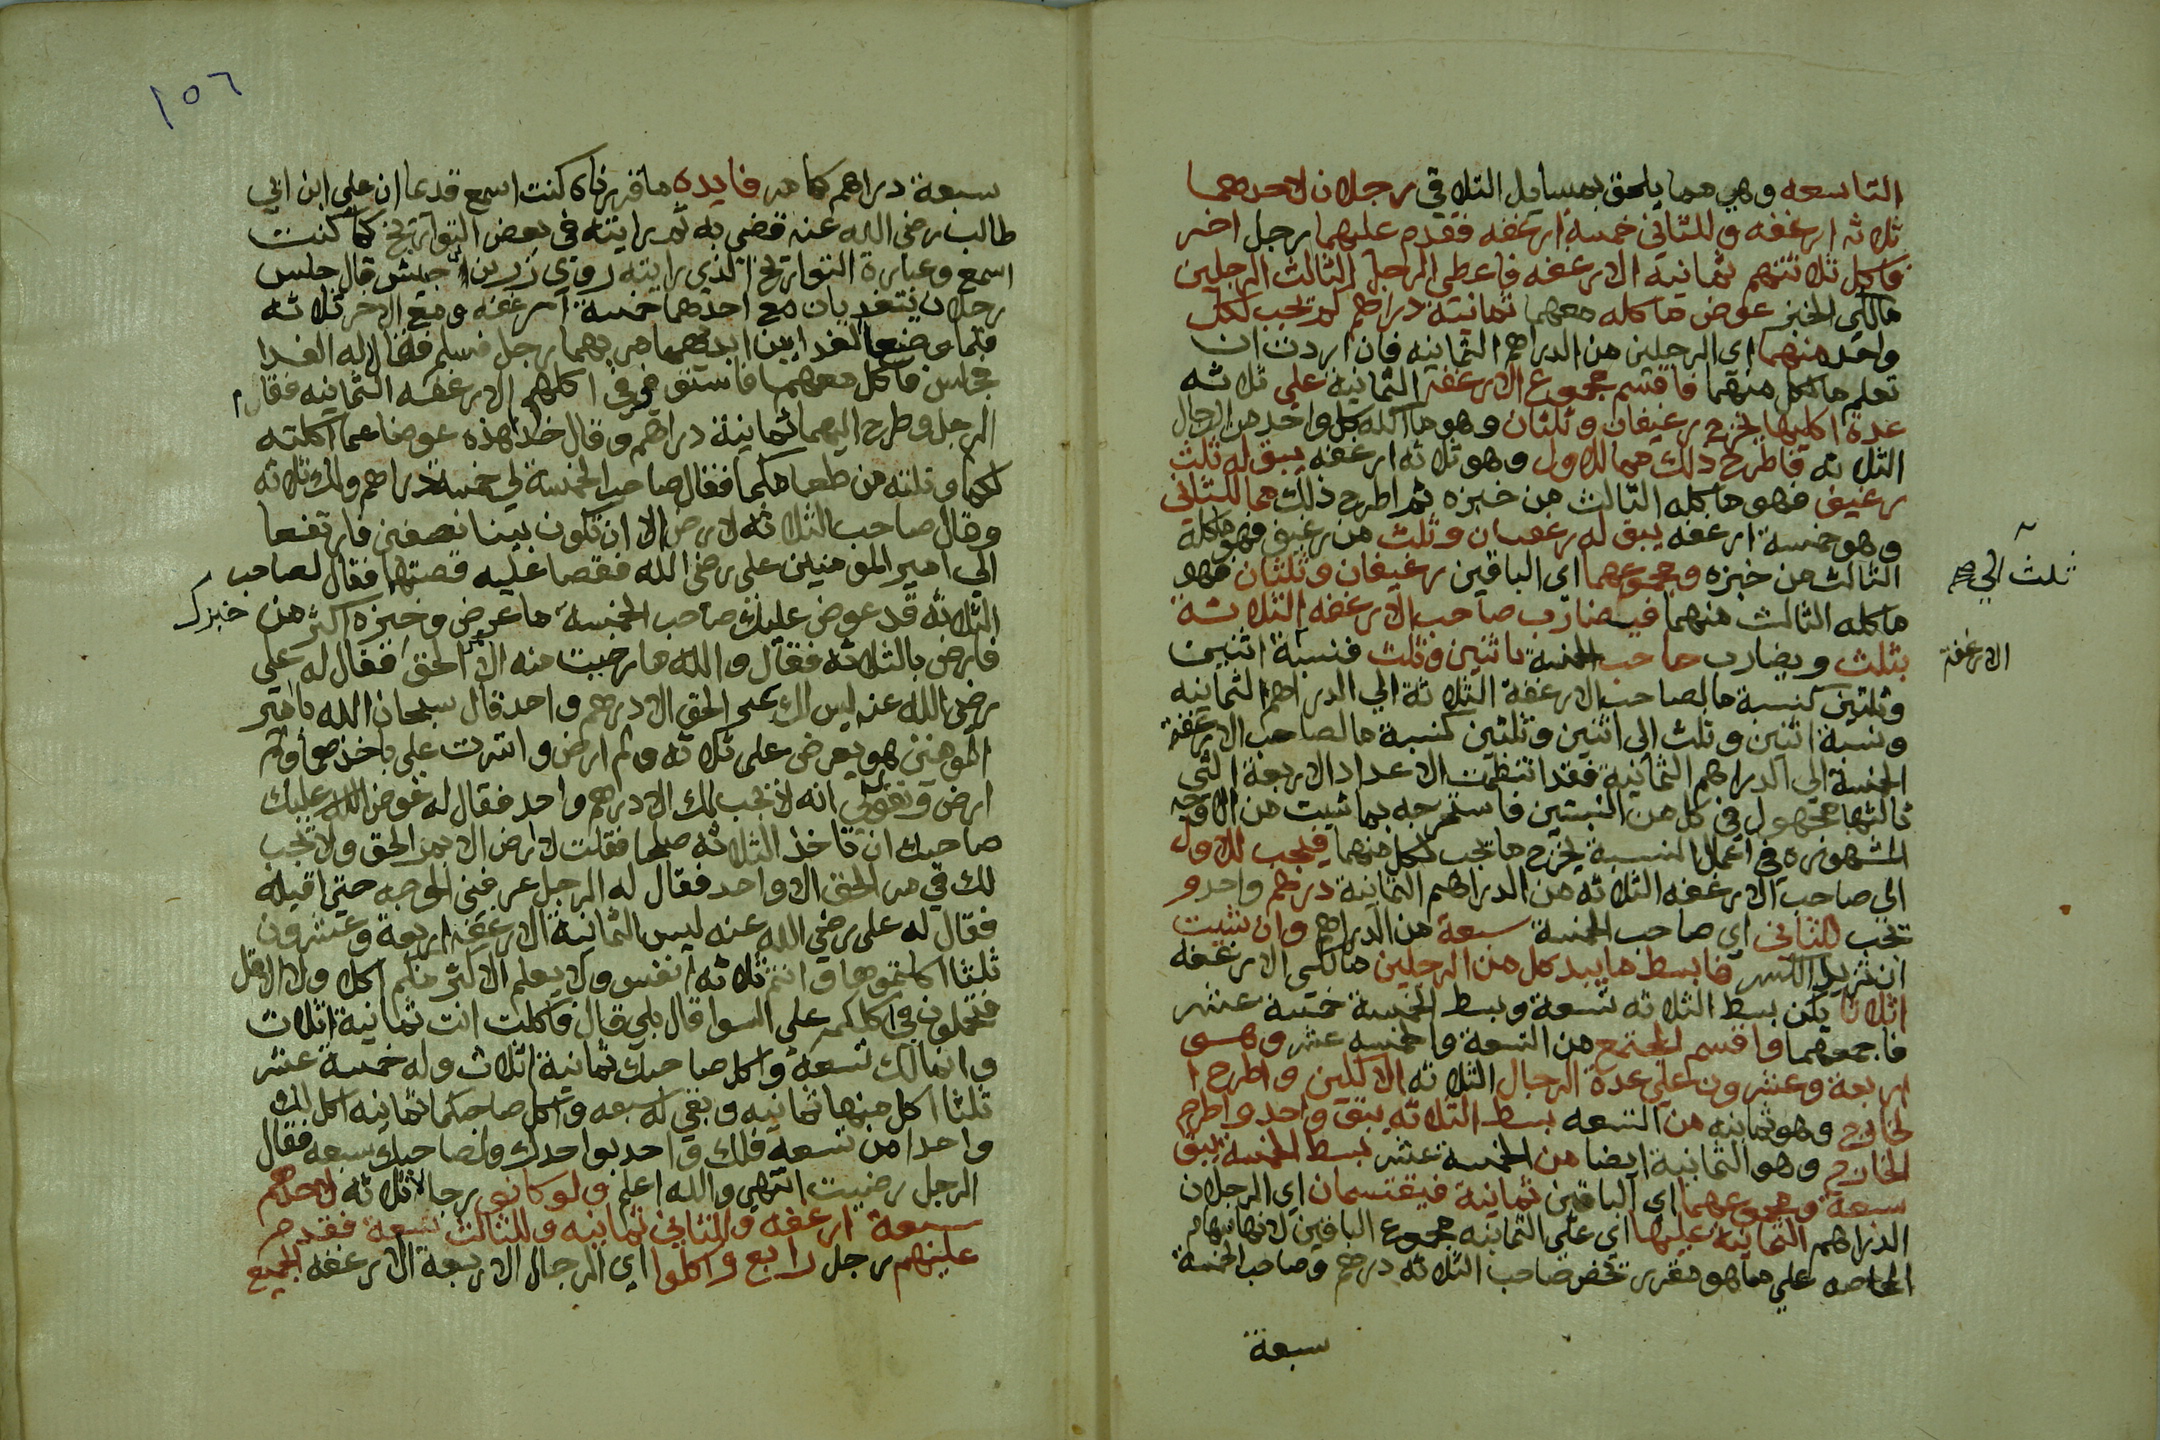 التاسعه وهي مما يلحق بمسايل التلاقي رجلان لاحدهما
ثلاثه ارغفه وللثاني خمسة ارغفه فقدم عليهما رجل اخر
فاكل ثلاثتهم ثمانية الارغفه فاعطى الرجل الثالث الرجلين
مالكي الخبز عوض ماكله معهما ثمانية دراهم كم تجب لكل
واحد منهما اي الرجلين من الدراهم الثمانيه فان اردت ان
تعلم ما لكل منهما فاقسم مجموع الارغفه الثمانية علي ثلاثه
عدة اكليها يخرج رغيفان وثلثان وهو ما اكله كل واحد من الرجال
الثلاثه فاطرح ذلك مما للاول وهو ثلاثه ارغفه يبق له ثلث
رغيف فهو ماكله الثالث من خبزه ثم اطرح ذلك مما للثاني
وهو خمسة ارغفه يبق له رغيفان وثلث من رغيف فهو ماكله
الثالث من خبزه ومجموعهما اي الباقين رغيفان وثلثان فهو
ماكله الثالث منهما فيضارب صاحب الارغفه الثلاثة
بثلث ويضارب صاحب الخمسة باثنين وثلث فنسبة اثنين
ثلث الي
الارغفة
وثلثين كنسبة ما لصاحب الارغفة الثلاثة الي الدراهم الثمانيه
ونسبة اثنين وثلث الى اثنين وثلثين كنسبة ما لصاحب الارغفة
الخمسة الى الدراهم الثمانية فقد انتظمت الاعداد الاربعة التي
ثالثها مجهول في كل من النسبتين فاستخرجه بما شيت من الاوجه
المشهوره في اعمال النسبة يخرج ما تجب لكل منهما فيجب للاول
اي صاحب الارغفه الثلاثه من الدراهم الثمانية درهم واحد و
تجب للثاني اي صاحب الخمسة سبعة من الدراهم وان شيت
ان تزيل الكسر فابسط ما بيد كل من الرجلين مالكي الارغفه
اثلاثا يكن بسط الثلاثه تسعة وبسط الخمسة خمسة عشر
فاجمعهما واقسم المجتمع من التسعة والخمسة عشر وهو
اربعة وعشرون علي عدة الرجال الثلاثه الاكلين واطرح ا
لخارج وهو ثمانيه من التسعه بسط الثلاثه يبق واحد واطرح
الخارج وهو الثمانية ايضا من الخمسة عشر بسط الخمسة يبق
سبعة ومجموعهما اي الباقين ثمانية فيقتسمان اي الرجلان
الدراهم الثمانية عليها اي علي الثمانيه مجموع الباقين لانها سهام
المحاصه علي ما هو مقرر تخص صاحب الثلاثه درهم وصاحب الخمسة
سبعة
١٥٦
سبعة دراهم كما مر فايده ما قررناه كنت اسمع قدعا ان علي ابن ابي
طالب رضي الله عنه قضي به ثم رايته في بعض التواريخ كما كنت
اسمع وعبارة التواريخ الذي رايته روي زر بن جيش قال جلس
رجلان يتغديان مع احدهما خمسة ارغفه ومع الاخر ثلاثه
فلما وضعا الغدا بين ايديهما مر بهما رجل فسلم فقالا له الغدا
فجلس فاكل معهما فاستوفوا في اكلهم الارغفه الثمانيه فقام
الرجل وطرح اليهما ثمانية دراهم وقال خذا هذه عوضا عما اكلته
لكما ونلته من طعامكما فقال صاحب الخمسة لي خمسة دراهم ولك ثلاثه
وقال صاحب الثلاثه لا ارض الا ان تكون بيننا نصفين فارتفعا
الي امير المومنين علي رضي الله فقصا عليه قصتهما فقال لصاحب
الثلاثه قد عوض عليك صاحب الخمسة ما عرض وخبزه اكثر من خبزك
فارض بالثلاثه فقال والله ما رضيت منه الا الحق فقال له علي
رضي الله عنه ليس لك على الحق الا درهم واحد قال سبحان الله يا امير
المومنين هو يعرض على ثلاثه ولم ارض واشرت علي باخذها ولم
ارض وتقول لي انه لا تجب لك الا درهم واحد فقال له عرض الله عليك
صاحبك ان تاخذ الثلاثه صلحا فقلت لا ارض الا بمر الحق ولا تجب
لك في مر الحق الا واحد فقال له الرجل عرفني الوجه حتى اقبله
فقال له علي رضي الله عنه ليس الثمانية الارغفه اربعة وعشرون
ثلثا اكلتموها وانتم ثلاثه انفس ولا يعلم الاكثر منكم اكلا ولا الاقل
فتحملون في اكلكم على السوا قال بلي قال فاكلت انت ثمانية اثلاث
وانما لك تسعة واكل صاحبك ثمانية اثلاث وله خمسة عشر
ثلثا اكل منها ثمانيه وبقي له سبعه واكل صاحبكما ثمانيه اكل لك
واحدا من تسعة فلك واحد بواحدك ولصاحبك سبعه فقال
الرجل رضيت انتهي والله اعلم ولو كانوا رجالا ثلاثه لاحدهم
سبعة ارغفه وللثاني ثمانيه وللثالث تسعة فقدم
عليهم رجل رابع واكلوا اي الرجال الاربعة الارغفه الجميع